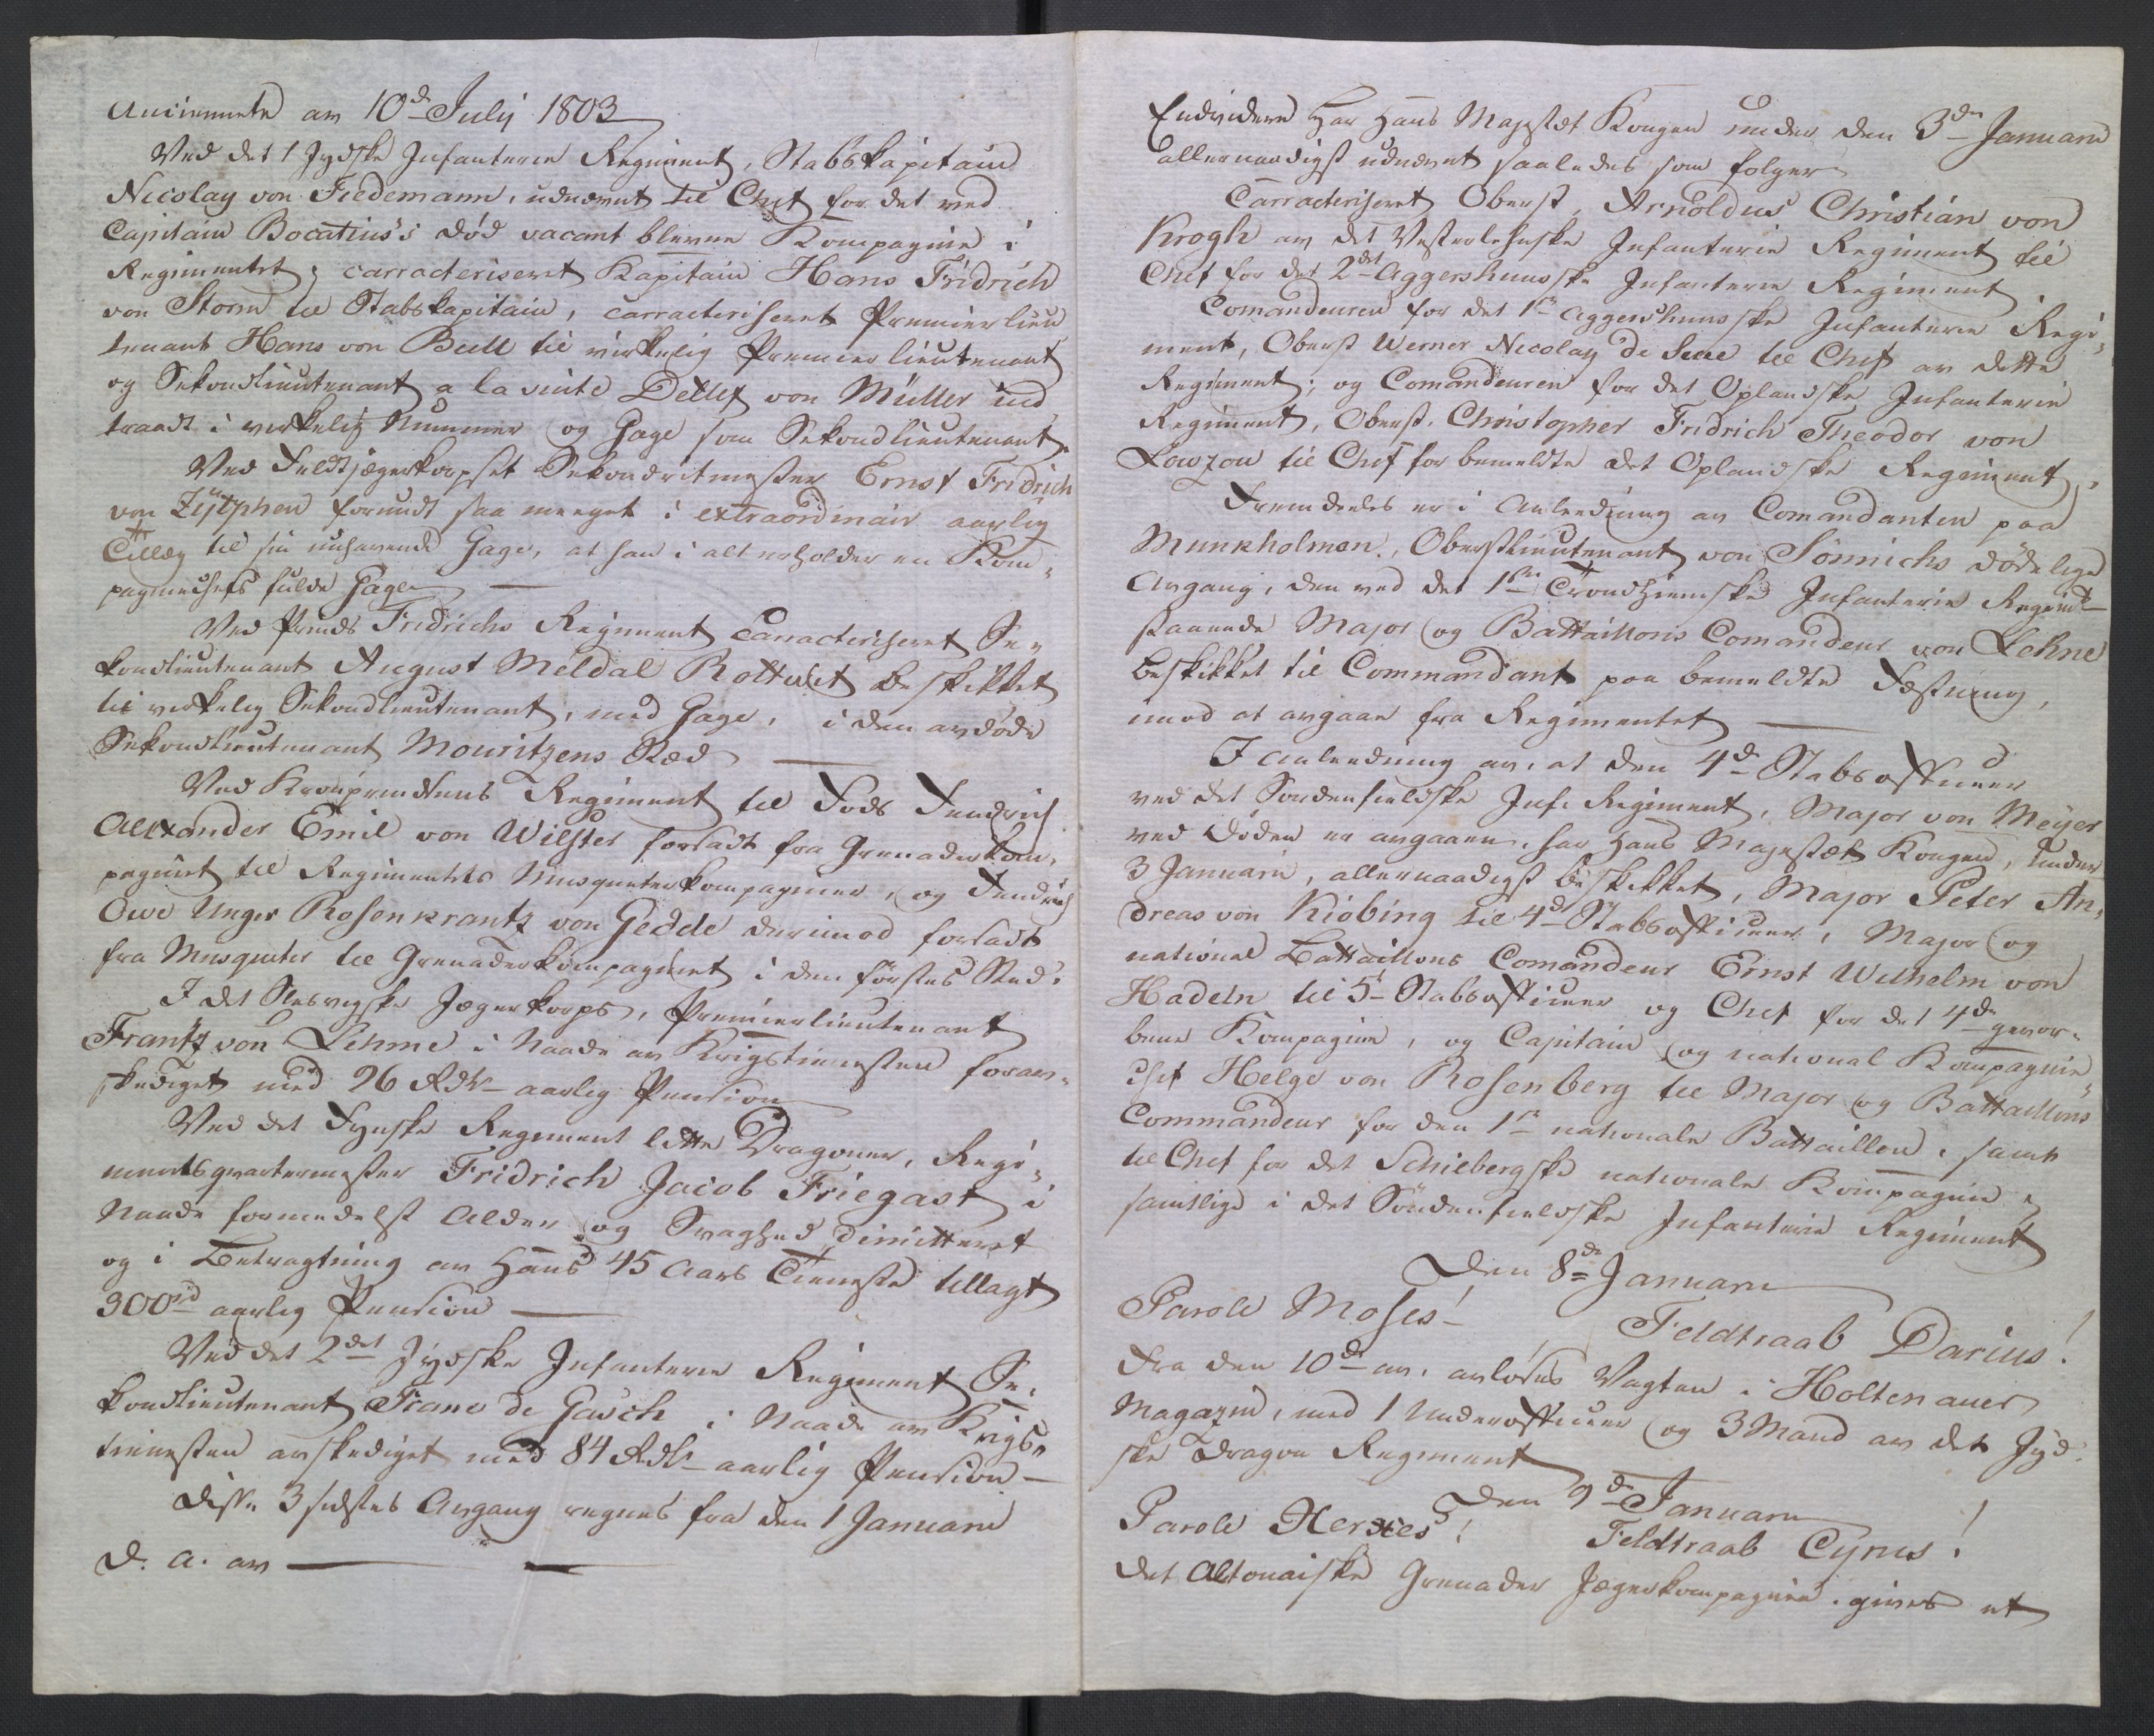 Anciennete av 10d July 1803
Ved det 1 Jydske Infanterie Regiment, Stabskapitain
Nicolay von Tiedemann, udnævnt til Chef for det ved
Capitain Bocatius's død vacant blevne Kompagnie i
Regimentet; carracteriseret Kapitain Hans Fridrich
von Storm til Stabskapitain, carracteriseret Premierlieu
tenant Hans von Bull til virkelig Premierlieutenant
og Sekondlieutenant a la suite Detlef von Müller ind
traadt i virkelig Nummer og Gage som Sekondlieutenant.
Ved Feldtjægerkorpset Sekondritmester Ernst Fridrich
von Zytphen forundt saa meeget i extraordinair aarlig
Tillæg til sin nuhavende Gage, at han i alt erholder en Kom-
pagniechefs fulde Gage
Ved Prinds Fridrichs Regiment Carracteriseret Se-
kondlieutenant August Meldal beskikket
til virkelig Sekondlieutenant, med Gage, i den avdøde
Sekondlieutenant Mouritzens Sted
Ved Kronprindsens Regiment til Fods Fendrich
Alexander Emil von Wilster forsadt fra Grenaderkom-
pagniet til Regimentets Musqueterkompagnier, og Fendrich
Owe Unger Rosenkrantz von Gedde derimod forsadt
fra Musqueter til Grenaderkompagniet i den førstes Sted.
I det Slesvigske Jægerkorps, Premierlieutenant
Frantz von Lehme i Naade av Krigstienesten forav-
skediget med 96 Rdlr aarlig Pension
Ved det Fynske Regiment lette Dragoner, Regi-
mentsqvartermester Fridrich Jacob Friegast i
Naade formedelst Alder og Svaghed dimitteret
og i Betragtning av Hans 45 Aars Tieneste tillagt
300rd aarlig Pension
Ved det 2det Jydske Infanterie Regiment Se-
kondlieutenant Frans de Gasch i Naade av Krigs-
tienesten avskediget med 84 Rdlr aarlig Pension
Disse 3 sidstes Avgang regnes fra den 1 Januarii
d. a. av
Endvidere Har Hans Majestæt Kongen under den 3die Januarii
allernaadigst udnævnt saaledes som følger
Carracteriseret Oberst, Arnoldus Christian von
Krogh av det Vesterlehnske Infanterie Regiment til
Chef for det 2det Aggershuusske Infanterie Regiment
Comandeuren for det 1ste Aggershuusske Infanterie Regi-
ment, Oberst Werner Nicolay de Seue til Chef av dette
Regiment; og Comandeuren for det Oplandske Infanterie
Regiment, Oberst Christopher Fridrich Theodor von
Lowzow til Chef for bemeldte det Oplandske Regiment,
Fremdeeles er i Anleedning av Comandanten paa
Munkholmen, Oberstlieutenant von Sönnichs dødelige
Avgang, den ved det 1ste Trondhiemske Infanterie Regimt
staaende Major og Battaillons Comandeur von Lehne
beskikket til Commandant paa bemeldte Fæstning,
imod at avgaae fra Regimentet
I Anleedning av, at den 4de Stabsofficeer
ved det Søndenfieldske Inf. Regiment, Major von Meyer
ved døden er avgaaen, har Hans Majestæt Kongen, under
3 Januarii, allernaadigst beskikket, Major Peter An-
dreas von Kiøbing til 4de Stabsofficeer, Major og
national Battaillons Comandeur Ernst Wilhelm von
Hadeln til 5te Stabsofficeer og Chef for det 4de gevor-
bene Kompagnie, og Capitain og national Kompagnie
chef Helge von Rosenberg til Major og Battaillons
Commandeur for den 1ste nationale Battaillon, samt
til Chef for det Schiebergske nationale Kompagnie,
samtlige i det Søndenfieldske Infanterie Regiment
Den 8de Januarii
Parole Moses! Feldtraab Darius!
Fra den 10de av, avløses Vagten i Holtenauer
Magazin, med 1 Underofficeer og 3 Mand av det Jyd-
ske Dragon Regiment
Den 9de Januarii
Parole Xerxes! Feldtraab Cyrus!
Det Altonaiske Grenader Jægerkompagnie gives et